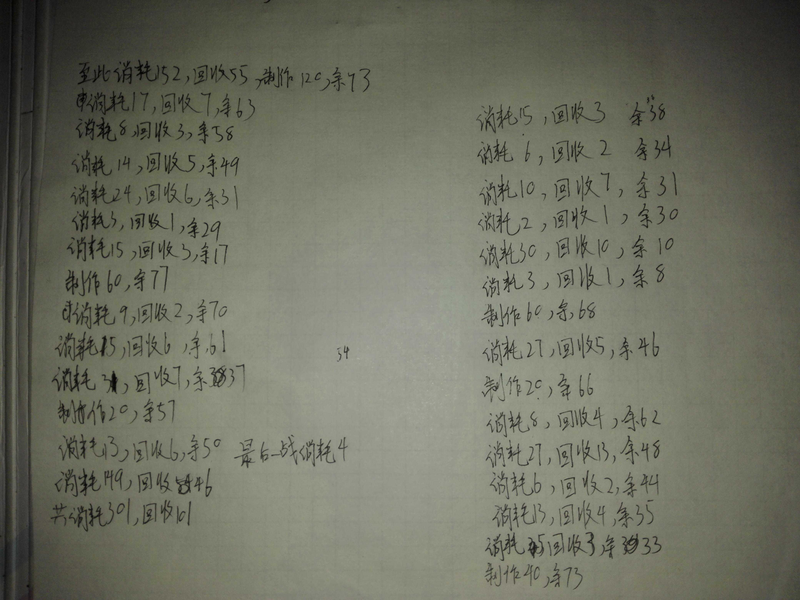 至此消耗152,回收55,制作120,余73
消耗17,回收7,余63
消耗8,回收3,余58
消耗14,回收5,余49
消耗24,回收6,余31
消耗3,回收1,余29
消耗15,回收3,余17
制作60,余77
消耗9,回收2,余70
消耗15,回收6,余61
消耗31,回收7,余37
制作20,余57
消耗13,回收6,余50 最后一战消耗4
消耗149,回收46
共消耗301,回收101
消耗15,回收3 余38
消耗6,回收2 余34
消耗10,回收7,余31
消耗2,回收1,余30
消耗30,回收10,余10
消耗3,回收1,余8
制作60,余68
消耗27,回收5,余46
制作20,余66
消耗8,回收4,余62
消耗27,回收13,余48
消耗6,回收2,余44
消耗13,回收4,余35
消耗5回收3,余33
制作40,余73